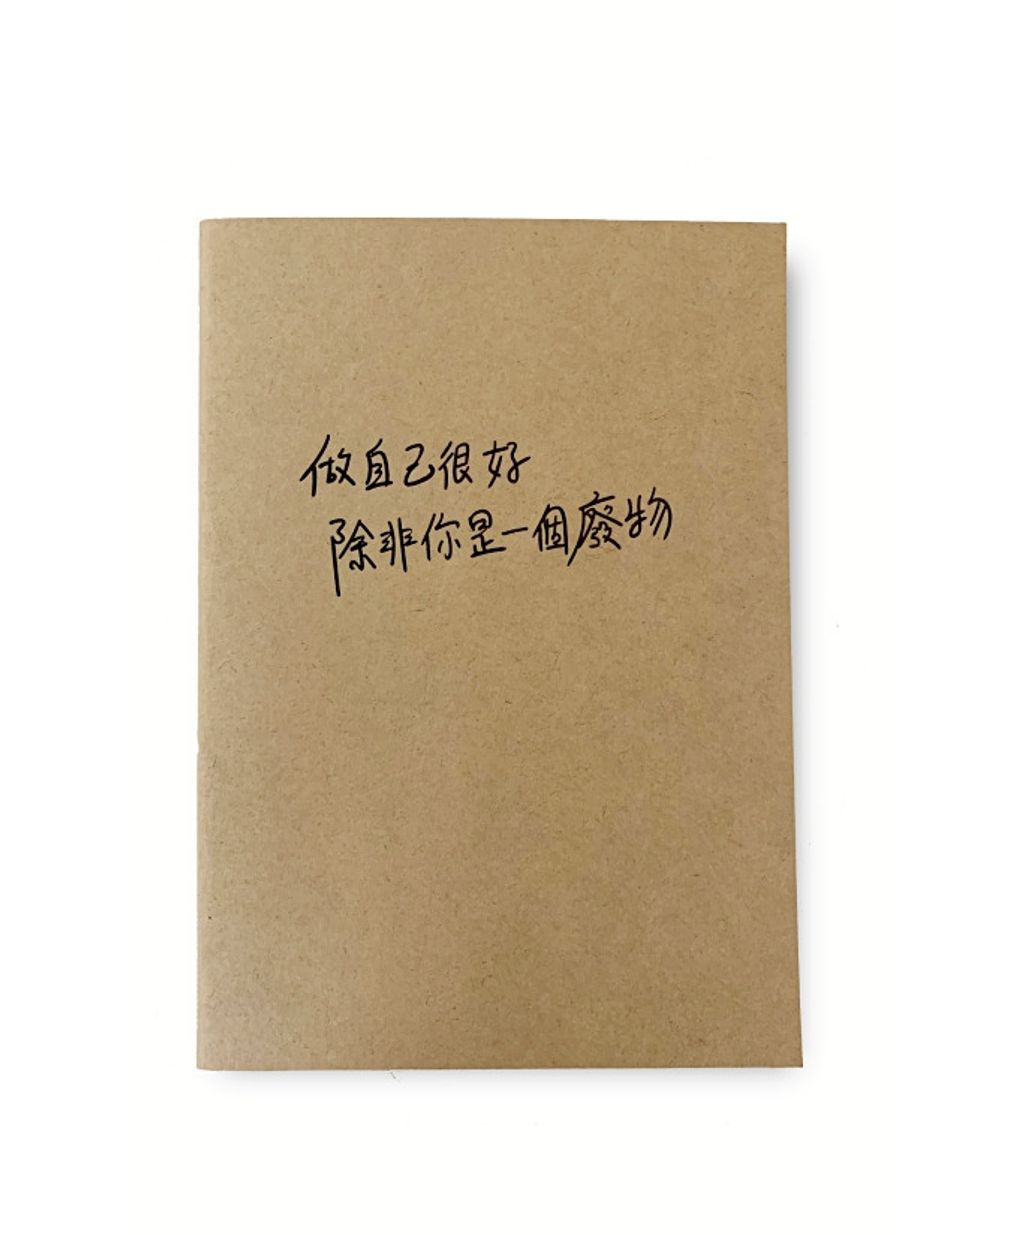 做自己很好
除非你是一個廢物